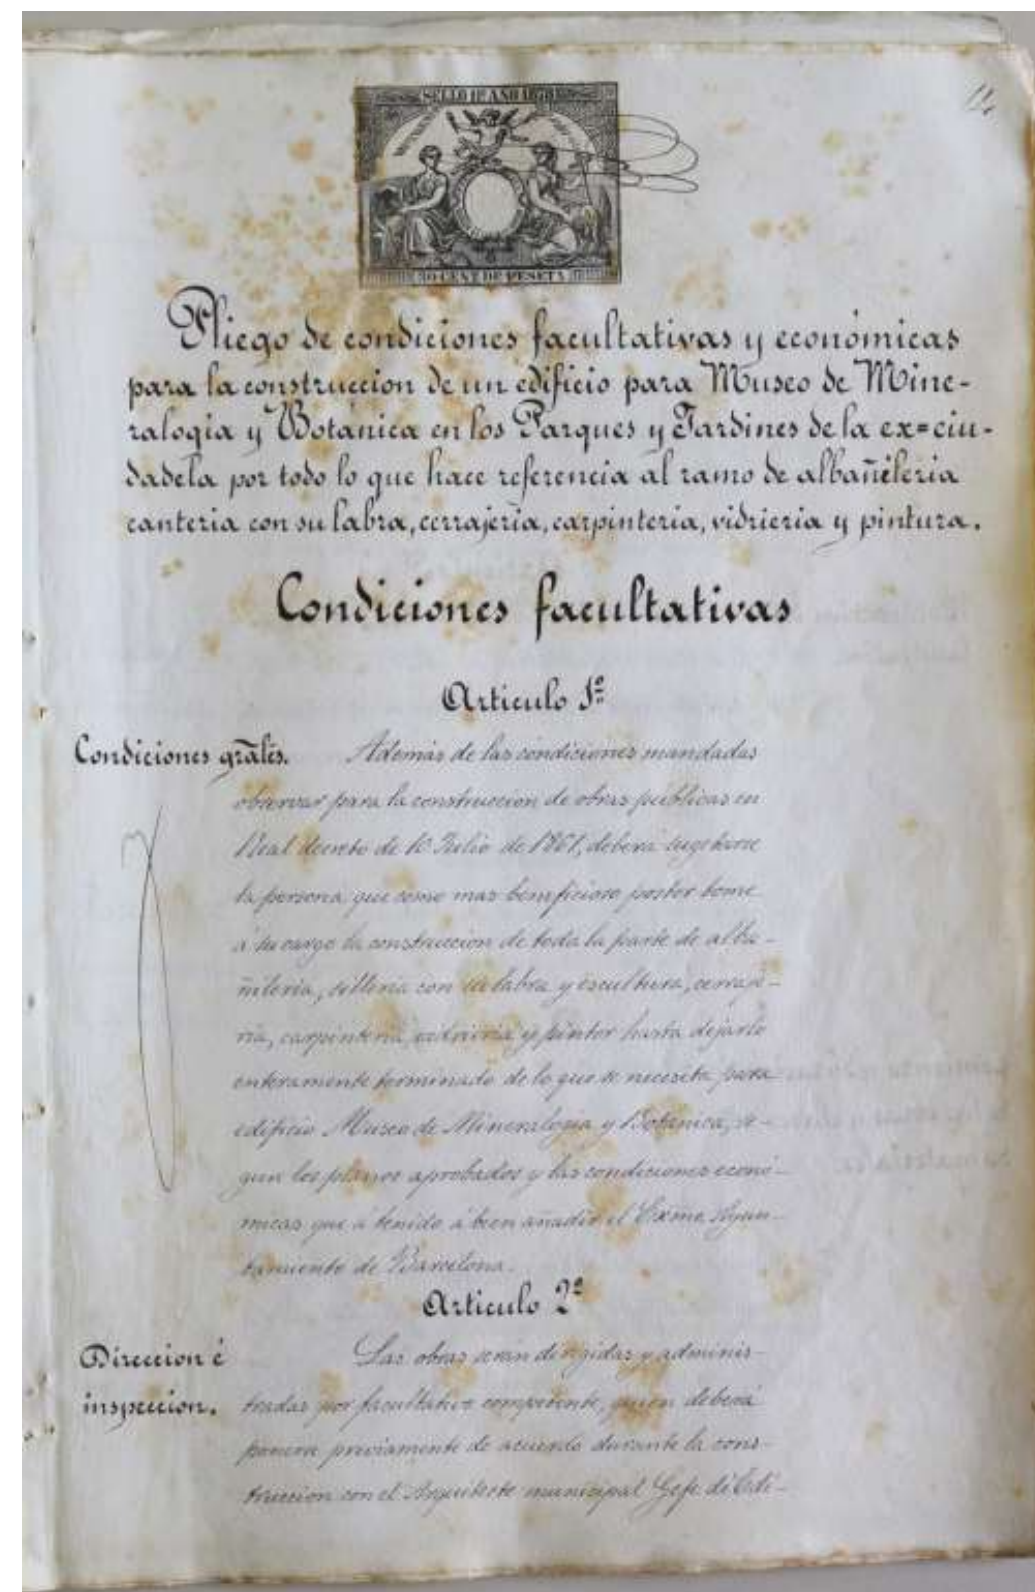 SELLO 11º AÑO 1878
50 CENT DE PESETA
Pliego de condiciones facultativas y económicas
para la construccion de un edificio para Museo de Mine-
ralogia y Botánica en los Parques y Jardines de la ex=ciu-
dadela por todo lo que hace referencia al ramo de albañileria
canteria con su labra, cerrajeria, carpinteria, vidrieria y pintura.
Condiciones facultativas
Articulo 1º
Condiciones grāles. Además de las condiciones mandadas
observar para la construccion de obras públicas en
Real decreto de 10 Julio de 1861, deberá sugetarse
la persona que como mas beneficioso postor tome
á su cargo la construccion de toda la parte de alba-
ñileria, silleria con su labra y escultura, cerraje-
ria, carpinteria, vidrieria y pintor hasta dejarlo
enteramente terminado de lo que se necesita para
edificio Museo de Mineralogia y Botánica, se-
gun los planos aprobados y las condiciones econó-
micas que á tenido á bien añadir el Exmo. Ayun-
tamiento de Barcelona.
Articulo 2º
Direccion é Las obras serán dirigidas y adminis-
inspeccion. tradas por facultativo competente, quien deberá
ponerse previamente de acuerdo durante la cons-
truccion con el Arquitecto municipal Gefe de Edi-